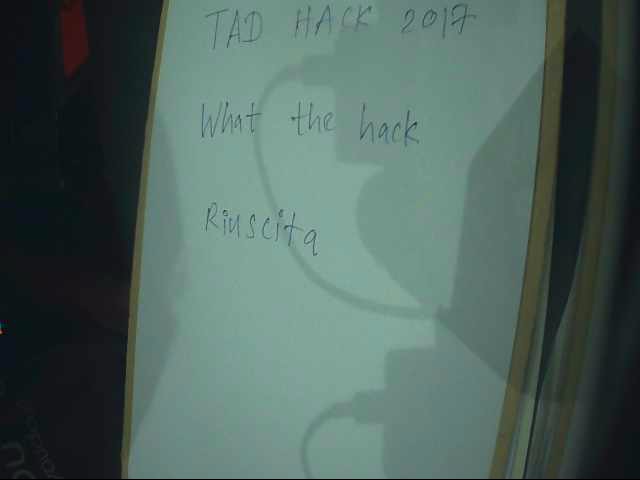 TAD HACK 2017
What the hack
Riuscita